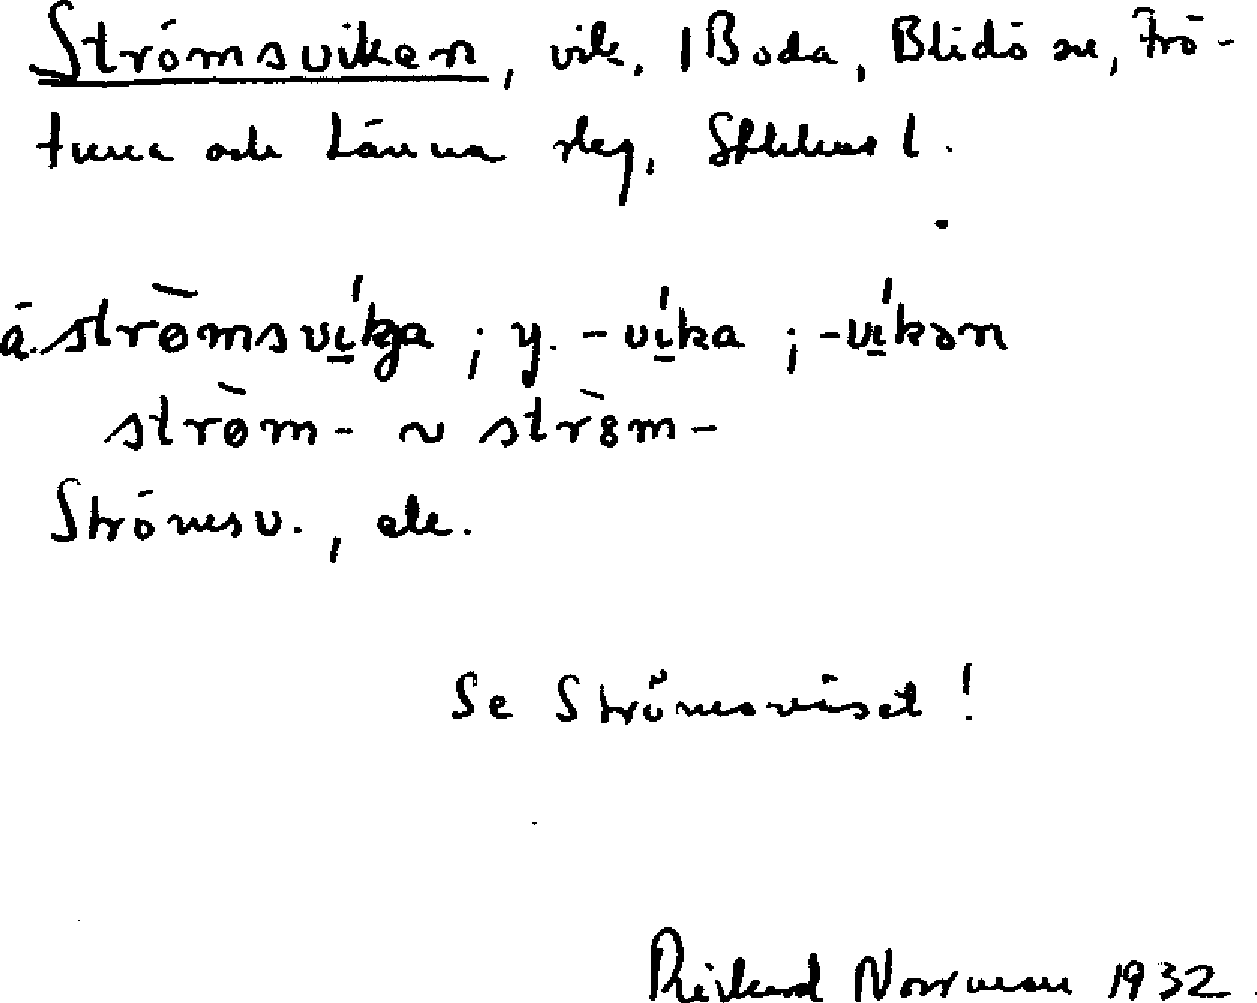 Strömsviken, vik, 1 Boda, Blidö sn, Frö-
tuna och Länna slg, Sthlms l.
ä. strömsvika ; y. -vika ; -vikən
strøm- ~ strɵm-
Strömsv., ele.
Se Strömsnäset !
Rickard Norrman 1932